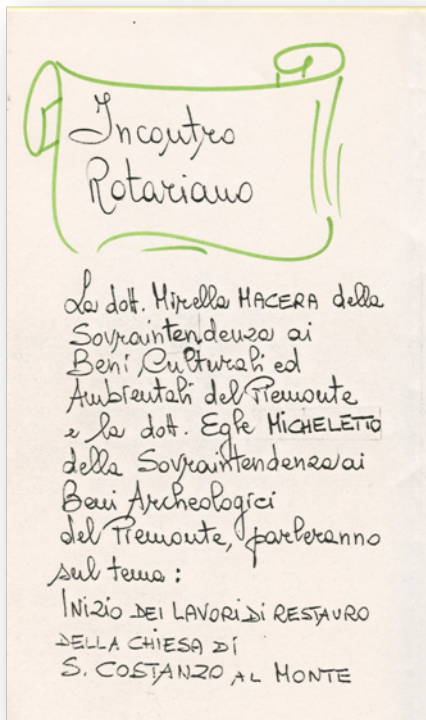 Incontro
Rotariano
La dott. Mirella MACERA della
Sovraintendenza ai
Beni Culturali ed
Ambientali del Piemonte
e la dott. Egle MICHELETTO
della Sovraintendenza ai
Beni Archeologici
del Piemonte, parleranno
sul tema :
INIZIO DEI LAVORI DI RESTAURO
DELLA CHIESA DI
S. COSTANZO AL MONTE